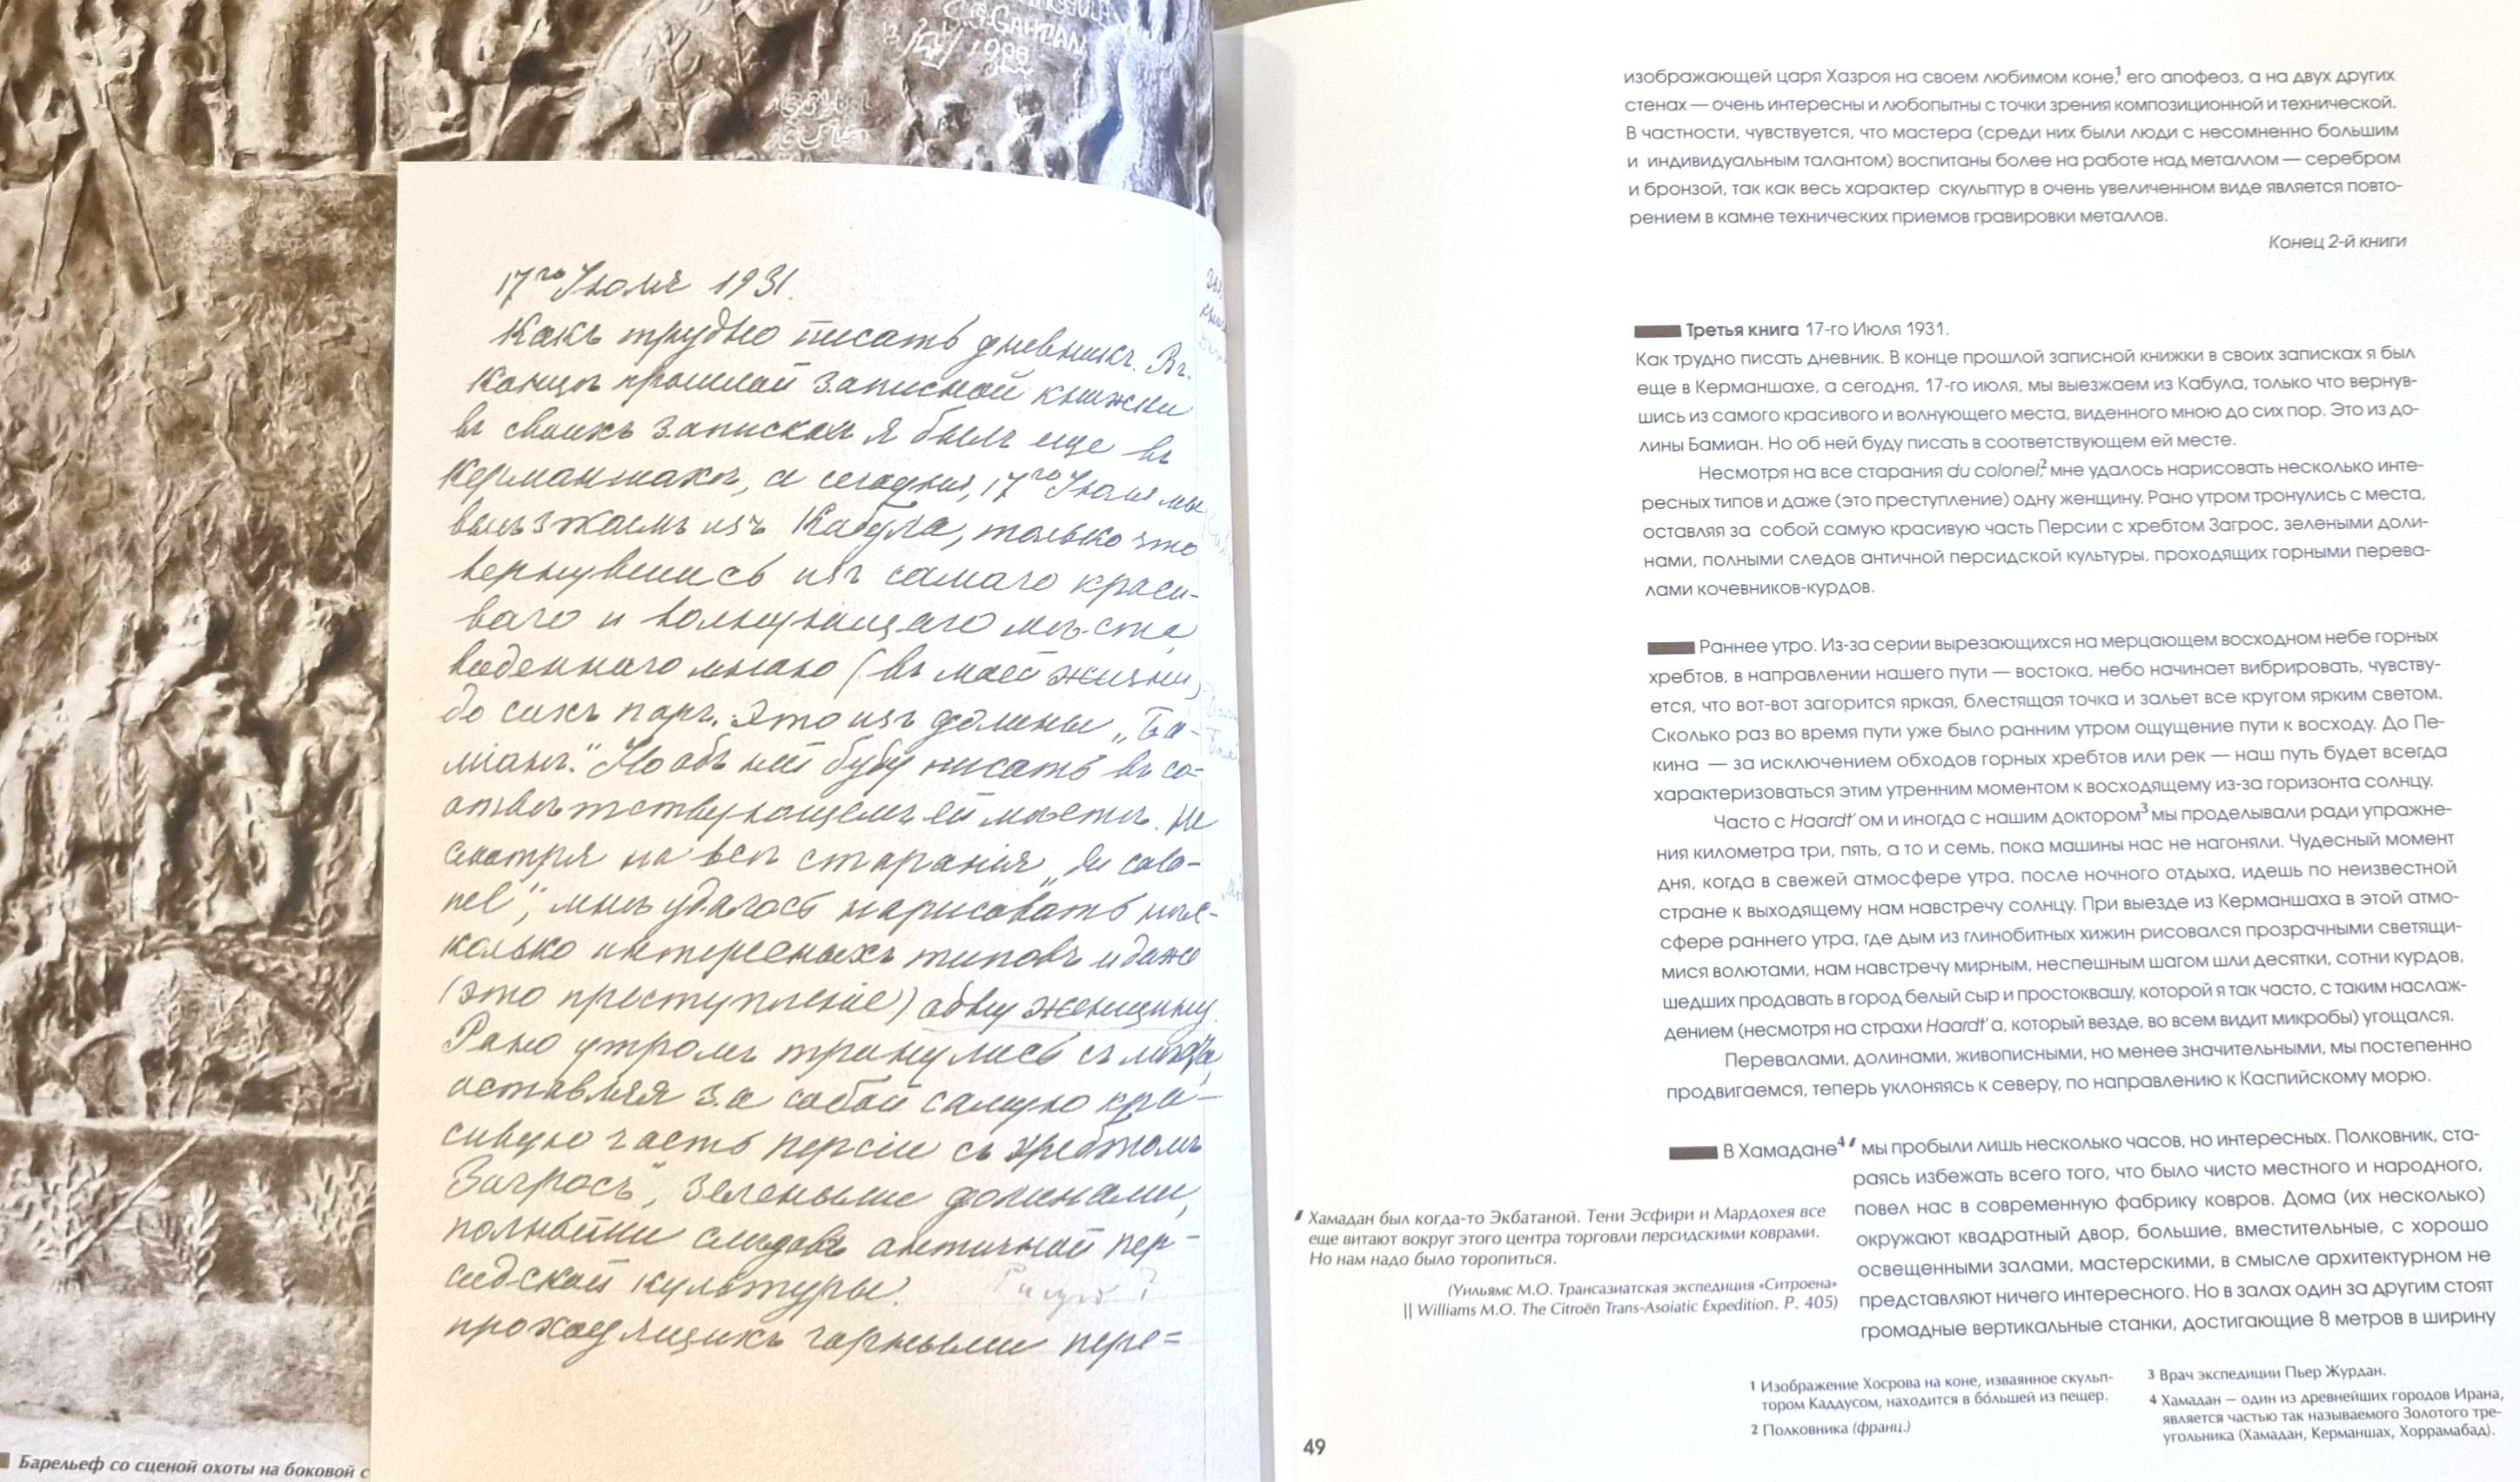 C.G.GAHTAN
1908
17го Іюля 1931.
Какъ трудно писать дневникъ. Въ
концѣ прошлой записной книжки
въ своихъ запискахъ я былъ еще въ
Керманшахѣ, а сегодня, 17го Іюля мы
выѣзжаемъ изъ Кабула, только что
вернувшись изъ самаго краси-
ваго и волнующаго мѣста,
виденнаго мною (въ моей жизни)
до сихъ поръ. Это изъ долины „Ба-
міанъ“. Но объ ней буду писать въ со-
отвѣтствующемъ ей мѣстѣ. Не
смотря на всѣ старанія „du colo-
nel“, мнѣ удалось нарисовать нѣс-
колько интересныхъ типовъ и даже
(это преступленіе) одну женщину.
Рано утромъ тронулись съ мѣста,
оставляя за собой самую кра-
сивую часть Персіи съ хребтомъ
Загросъ“, зелеными долинами,
полными слѣдовъ античной пер-
сидской культуры.
проходящихъ горными пере=
Барельеф со сценой охоты на боковой с
изображающей царя Хазроя на своем любимом коне,1 его апофеоз, а на двух других
стенах — очень интересны и любопытны с точки зрения композиционной и технической.
В частности, чувствуется, что мастера (среди них были люди с несомненно большим
и индивидуальным талантом) воспитаны более на работе над металлом — серебром
и бронзой, так как весь характер скульптур в очень увеличенном виде является повто-
рением в камне технических приемов гравировки металлов.
Конец 2-й книги
Третья книга 17-го Июля 1931.
Как трудно писать дневник. В конце прошлой записной книжки в своих записках я был
еще в Керманшахе, а сегодня, 17-го июля, мы выезжаем из Кабула, только что вернув-
шись из самого красивого и волнующего места, виденного мною до сих пор. Это из до-
лины Бамиан. Но об ней буду писать в соответствующем ей месте.
Несмотря на все старания du colonel,2 мне удалось нарисовать несколько инте-
ресных типов и даже (это преступление) одну женщину. Рано утром тронулись с места,
оставляя за собой самую красивую часть Персии с хребтом Загрос, зелеными доли-
нами, полными следов античной персидской культуры, проходящих горными перева-
лами кочевников-курдов.
Раннее утро. Из-за серии вырезающихся на мерцающем восходном небе горных
хребтов, в направлении нашего пути — востока, небо начинает вибрировать, чувству-
ется, что вот-вот загорится яркая, блестящая точка и зальет все кругом ярким светом.
Сколько раз во время пути уже было ранним утром ощущение пути к восходу. До Пе-
кина — за исключением обходов горных хребтов или рек — наш путь будет всегда
характеризоваться этим утренним моментом к восходящему из-за горизонта солнцу.
Часто с Haardt' ом и иногда с нашим доктором3 мы проделывали ради упражне-
ния километра три, пять, а то и семь, пока машины нас не нагоняли. Чудесный момент
дня, когда в свежей атмосфере утра, после ночного отдыха, идешь по неизвестной
стране к выходящему нам навстречу солнцу. При выезде из Керманшаха в этой атмо-
сфере раннего утра, где дым из глинобитных хижин рисовался прозрачными светящи-
мися волютами, нам навстречу мирным, неспешным шагом шли десятки, сотни курдов,
шедших продавать в город белый сыр и простоквашу, которой я так часто, с таким наслаж-
дением (несмотря на страхи Haardt' а, который везде, во всем видит микробы) угощался.
Перевалами, долинами, живописными, но менее значительными, мы постепенно
продвигаемся, теперь уклоняясь к северу, по направлению к Каспийскому морю.
В Хамадане4 мы пробыли лишь несколько часов, но интересных. Полковник, ста-
раясь избежать всего того, что было чисто местного и народного,
повел нас в современную фабрику ковров. Дома (их несколько)
окружают квадратный двор, большие, вместительные, с хорошо
освещенными залами, мастерскими, в смысле архитектурном не
представляют ничего интересного. Но в залах один за другим стоят
громадные вертикальные станки, достигающие 8 метров в ширину
Хамадан был когда-то Экбатаной. Тени Эсфири и Мардохея все
еще витают вокруг этого центра торговли персидскими коврами.
Но нам надо было торопиться.
(Уильямс М.О. Трансазиатская экспедиция «Ситроена»
|| Williams M.O. The Citroën Trans-Asoiatic Expedition. P. 405)
1 Изображение Хосрова на коне, изваянное скульп-
тором Каддусом, находится в бóльшей из пещер.
2 Полковника (франц.)
3 Врач экспедиции Пьер Журдан.
4 Хамадан — один из древнейших городов Ирана,
является частью так называемого Золотого тре-
угольника (Хамадан, Керманшах, Хоррамабад).
49